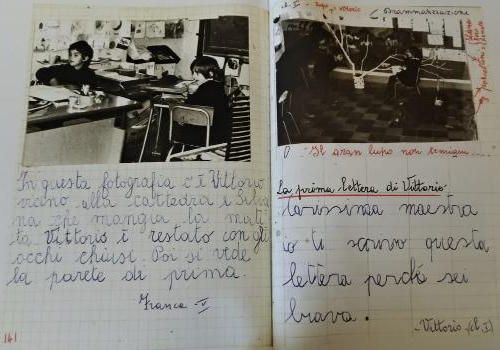 In questa fotografia c'è Vittorio
vicino alla cattedra e Silia
na che mangia la mati
ta Vittorio è restato con gli
occhi chiusi. Poi si vede
la parete di prima.
Franca V
141
cl. I
Drammatizzazione
Il gran lupo non temiam.....
La prima lettera di Vittorio
Carissima maestra
io ti scrivo questa
lettera perché sei
brava.
Vittorio (cl. I)